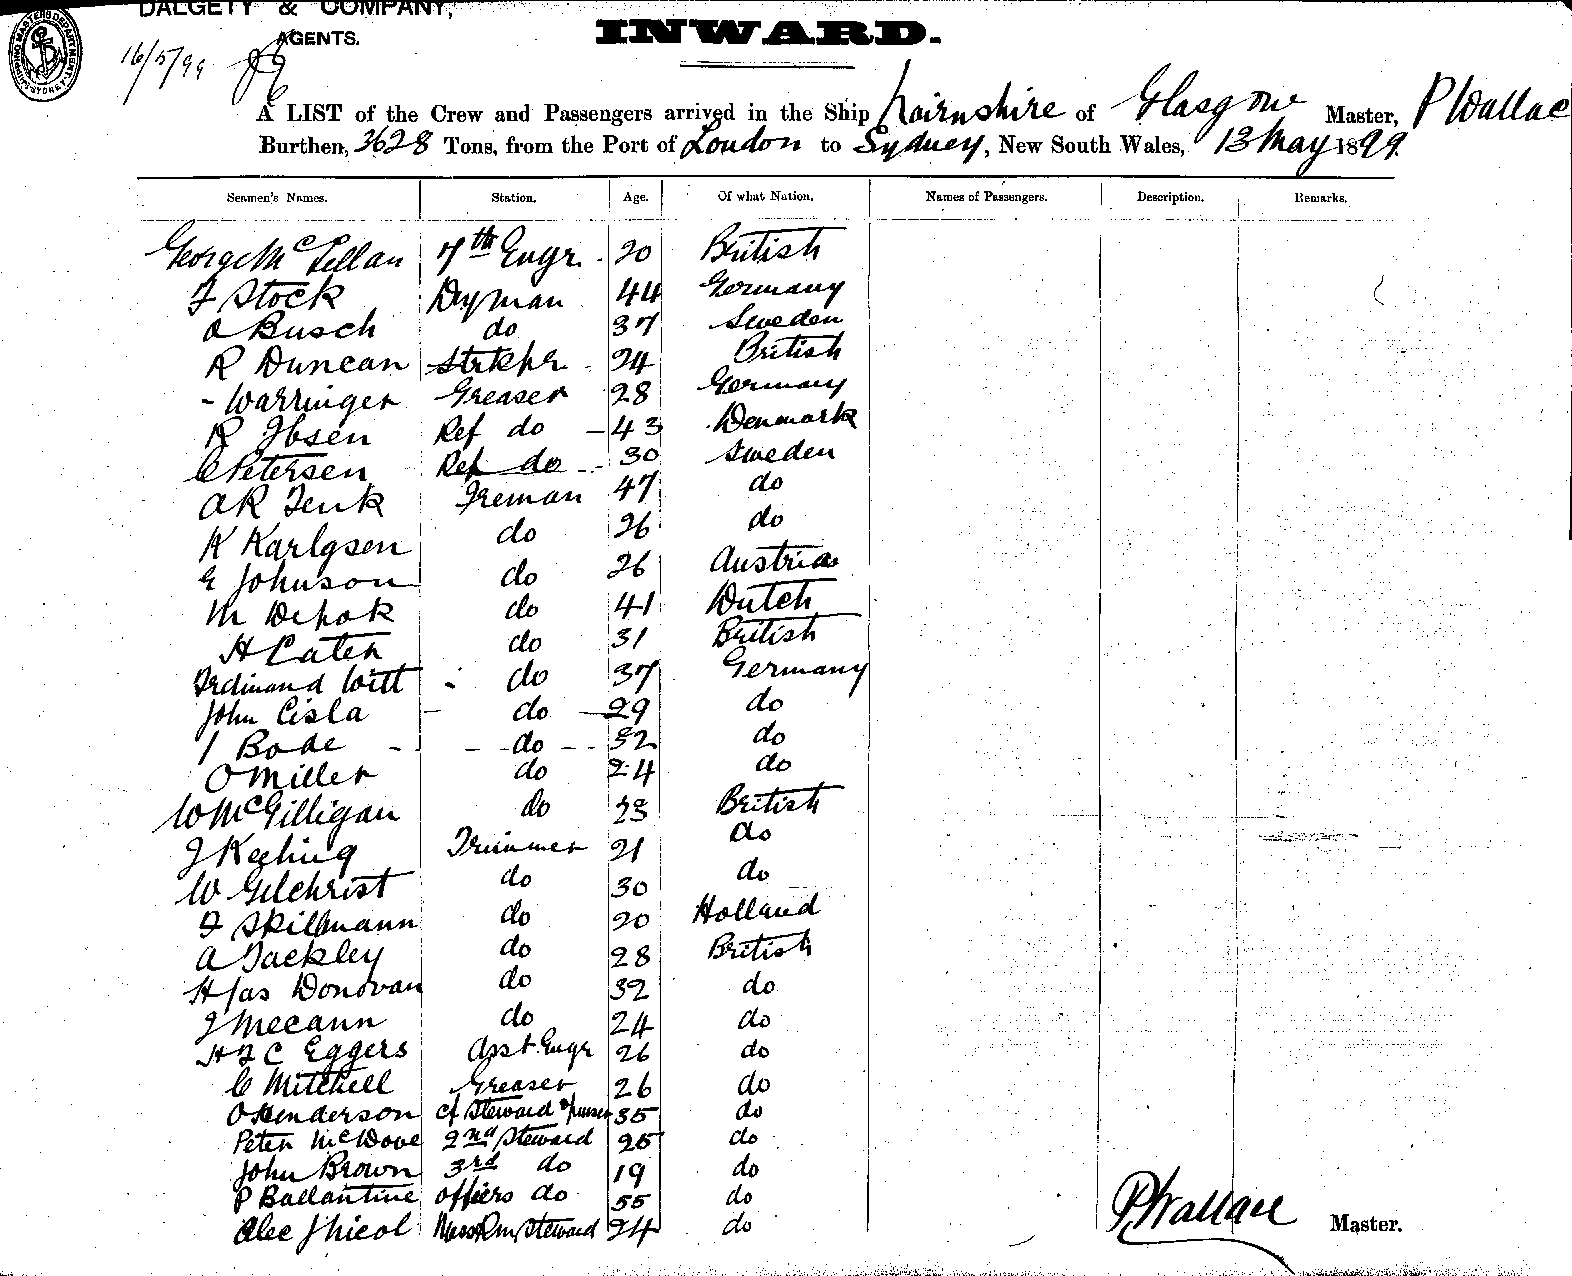 DALGETY & COMPANY,
AGENTS.
16/5/99
INWARD.
A LIST of the Crew and Passengers arrived in the Ship Nairnshire of Glasgow Master, P Wallac
Burthen, 3628 Tons, from the Port of London to Sydney, New South Wales, 13 May 1899.
Seamen's Names. Station. Age. Of what Nation. Names of Passengers. Description. Remarks.
George McLellan 7th Engr. 20 British
F Stock Dyman 44 Germany
O Busch do 37 Sweden
R Duncan Strkpr 24 British
- Warringer Greaser 28 Germany
R Ibsen Ref do 43 Denmark
C Petersen Ref do 30 Sweden
A R Tenk Freman 47 do
K Karlgsen do 26 do
E Johnson do 26 Austria
M Dehok do 41 Dutch
H Cater do 31 British
Frdinand Witt do 37 Germany
John Cisla do 29 do
J Bode do 32 do
O Miller do 24 do
W McGilligan do 23 British
J Keeling Trimmer 21 do
W Gilchrist do 30 do
F Skillmann do 20 Holland
A Tackley do 28 British
H Jas Donovan do 32 do
J Mccann do 24 do
H F C Eggers Asst. Engr 26 do
C Mitchell Greaser 26 do
O Henderson Cf Steward & purser 35 do
Peter McDove 2nd Steward 25 do
John Brown 3rd do 19 do
P Ballantine offiers do 55 do
Alec J Nicol Mess Rm Steward 24 do
P Wallace Master.